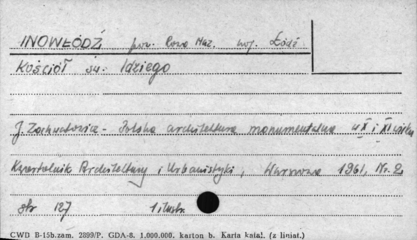 INOWŁÓDŹ pow. Rawa Maz. woj. Łódź
Kościół św. Idziego
J. Zachwatowicz - Polska architektura monumentalna w X i XI wieku
Kwartalnik Architektury i Urbanistyki, Warszawa 1961, Nr. 2,
str 127 1 ilustr.
CWD B-15b.zam. 2899/P. GDA-8. 1.000.000. karton b. Karta katal. (z liniat.)